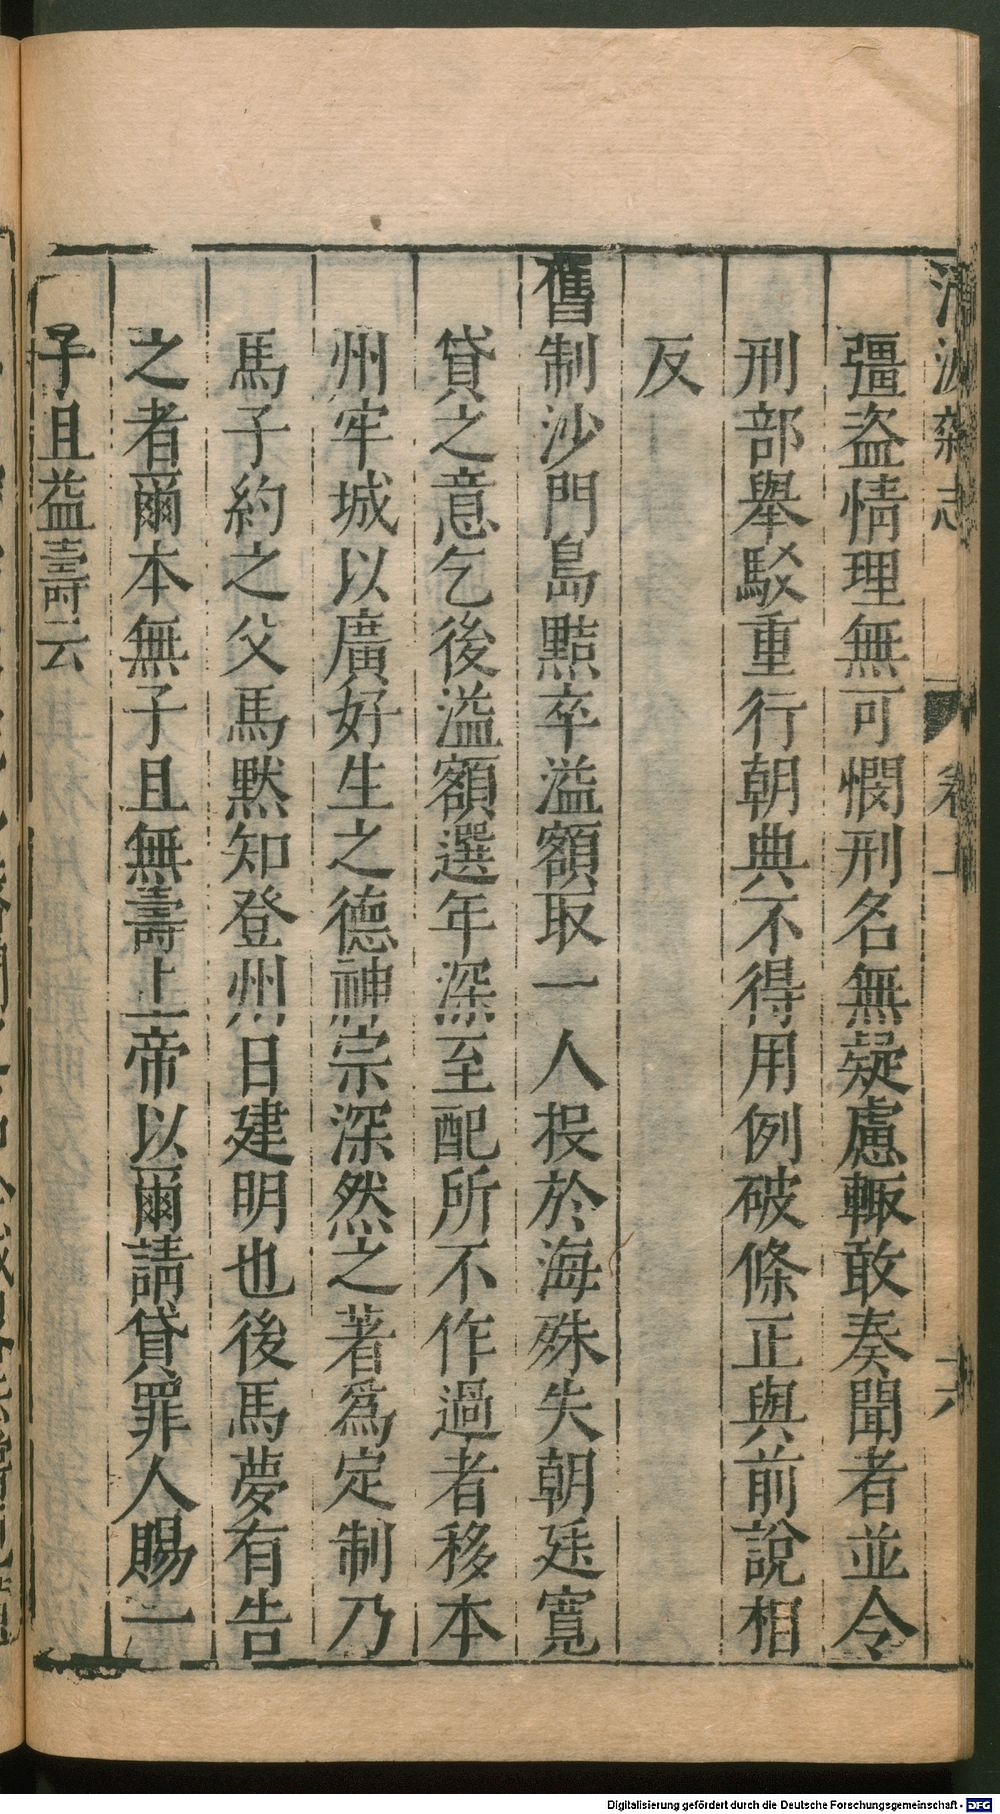 彊盗情理無可憫刑名無疑慮輙敢奏聞者並令
刑部舉駁重行朝典不得用例破條正與前說相
反
舊制沙門島黥卒溢額取一人投於海殊失朝廷寬
貸之意乞後溢額選年深至配所不作過者移本
州牢城以廣好生之德神宗深然之著爲定制乃
馬子約之父馬默知登州日建明也後馬夢有告
之者爾本無子且無壽上帝以爾請貸罪人賜一
子且益壽云
Digitalisierung gefördert durch die Deutsche Forschungsgemeinschaft - DFG